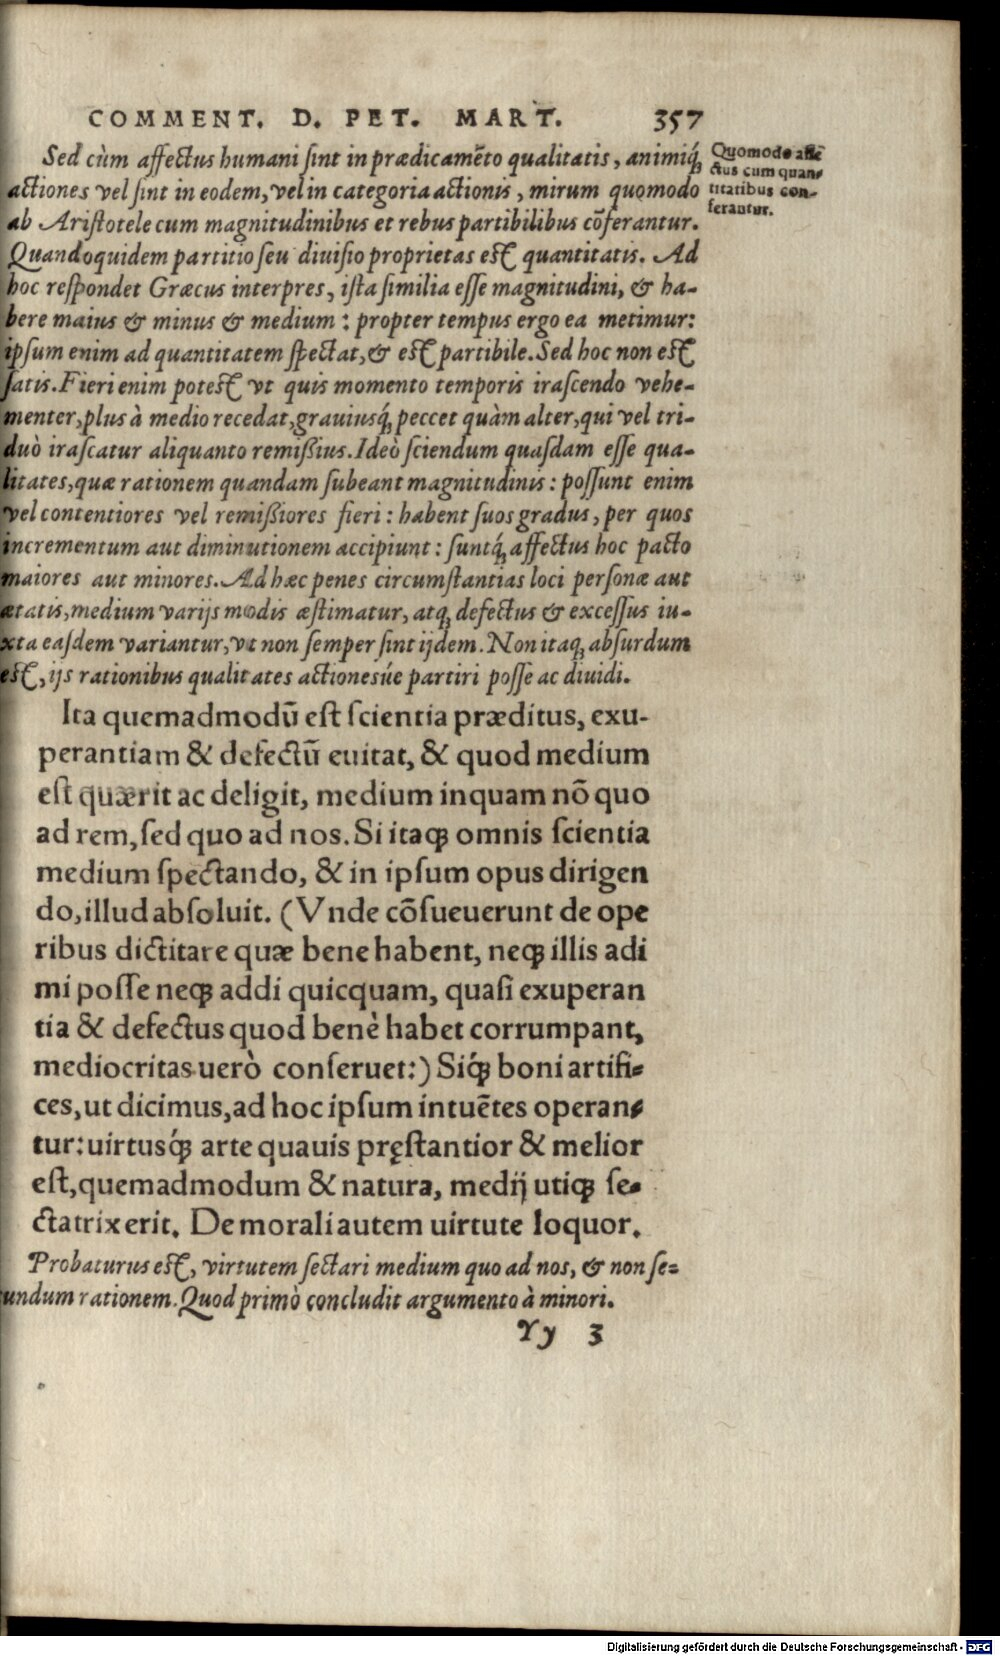 COMMENT. D. PET. MART. 357
Sed cùm affectus humani ſint in prædicamẽto qualitatis, animiq́
actiones vel ſint in eodem, vel in categoria actionis, mirum quomodo
ab Ariſtotele cum magnitudinibus et rebus partibilibus cõferantur.
Quandoquidem partitio ſeu diuiſio proprietas eſt quantitatis. Ad
hoc reſpondet Græcus interpres, iſta ſimilia eſſe magnitudini, & ha-
bere maius & minus & medium : propter tempus ergo ea metimur:
ipſum enim ad quantitatem ſpectat, & eſt partibile. Sed hoc non eſt
ſatis. Fieri enim poteſt vt quis momento temporis iraſcendo vehe-
menter, plus à medio recedat, grauiusq́ꝫ peccet quàm alter, qui vel tri-
duò iraſcatur aliquanto remißius. Ideò ſciendum quaſdam eſſe qua-
litates, quæ rationem quandam ſubeant magnitudinis : poſſunt enim
vel contentiores vel remißiores fieri : habent ſuos gradus, per quos
incrementum aut diminutionem accipiunt : ſuntq́ꝫ affectus hoc pacto
maiores aut minores. Ad hæc penes circumſtantias loci perſonæ aut
ætatis, medium varijs modis æſtimatur, atqꝫ defectus & exceſſus iu-
xta eaſdem variantur, vt non ſemper ſint ijdem. Non itaqꝫ abſurdum
eſt, ijs rationibus qualitates actionesúe partiri poſſe ac diuidi.
Quomodo affe
ctus cum quan-
titatibus con-
ferantur.
Ita quemadmodũ eſt ſcientia præditus, exu-
perantiam & defectũ euitat, & quod medium
eſt quærit ac deligit, medium inquam nõ quo
ad rem, ſed quo ad nos. Si itaqꝫ omnis ſcientia
medium ſpectando, & in ipſum opus dirigen
do, illud abſoluit. (Vnde cõſueuerunt de ope
ribus dictitare quæ bene habent, neqꝫ illis adi
mi poſſe neqꝫ addi quicquam, quaſi exuperan
tia & defectus quod benè habet corrumpant,
mediocritas uerò conſeruet:) Siq́ꝫ boni artifi-
ces, ut dicimus, ad hoc ipſum intuẽtes operan-
tur: uirtusq́ꝫ arte quauis pręſtantior & melior
eſt, quemadmodum & natura, medij utiqꝫ ſe-
ctatrix erit. De morali autem uirtute loquor.
Probaturus eſt, virtutem ſectari medium quo ad nos, & non ſe-
undum rationem. Quod primò concludit argumento à minori.
Yy 3
Digitalisierung gefördert durch die Deutsche Forschungsgemeinschaft - DFG